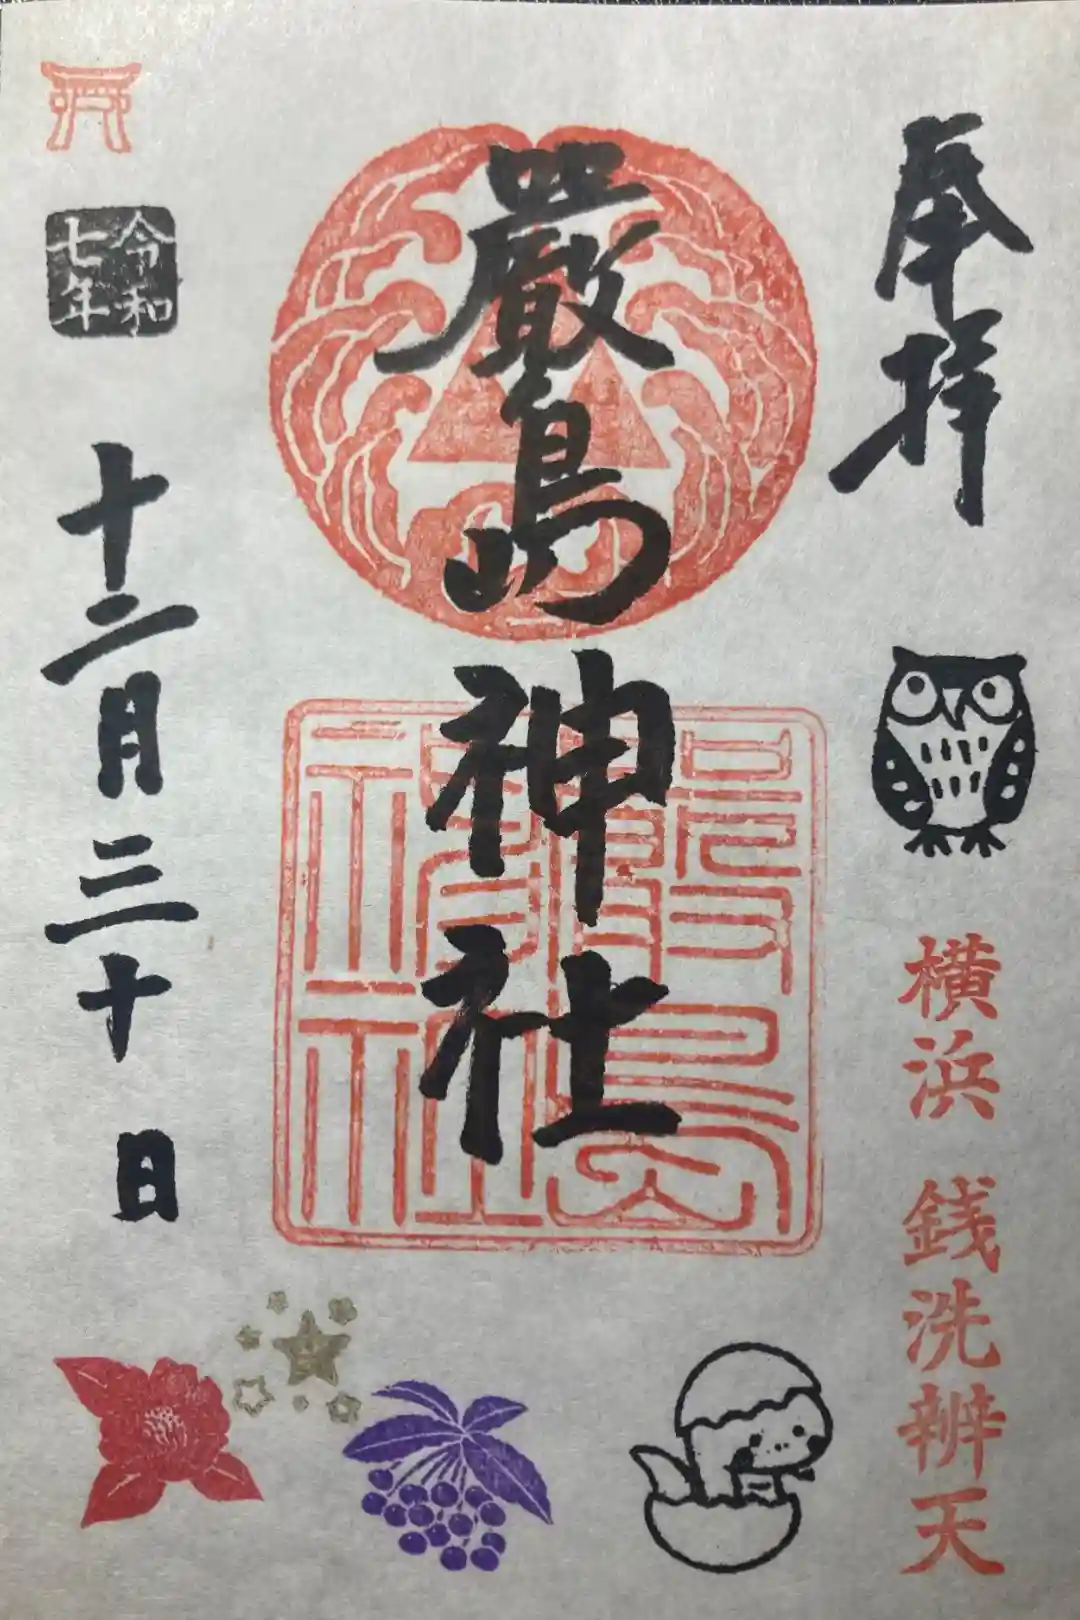 奉拝
横浜 銭洗辨天
嚴島神社
嚴島
神社
令和
七年
十二月三十日